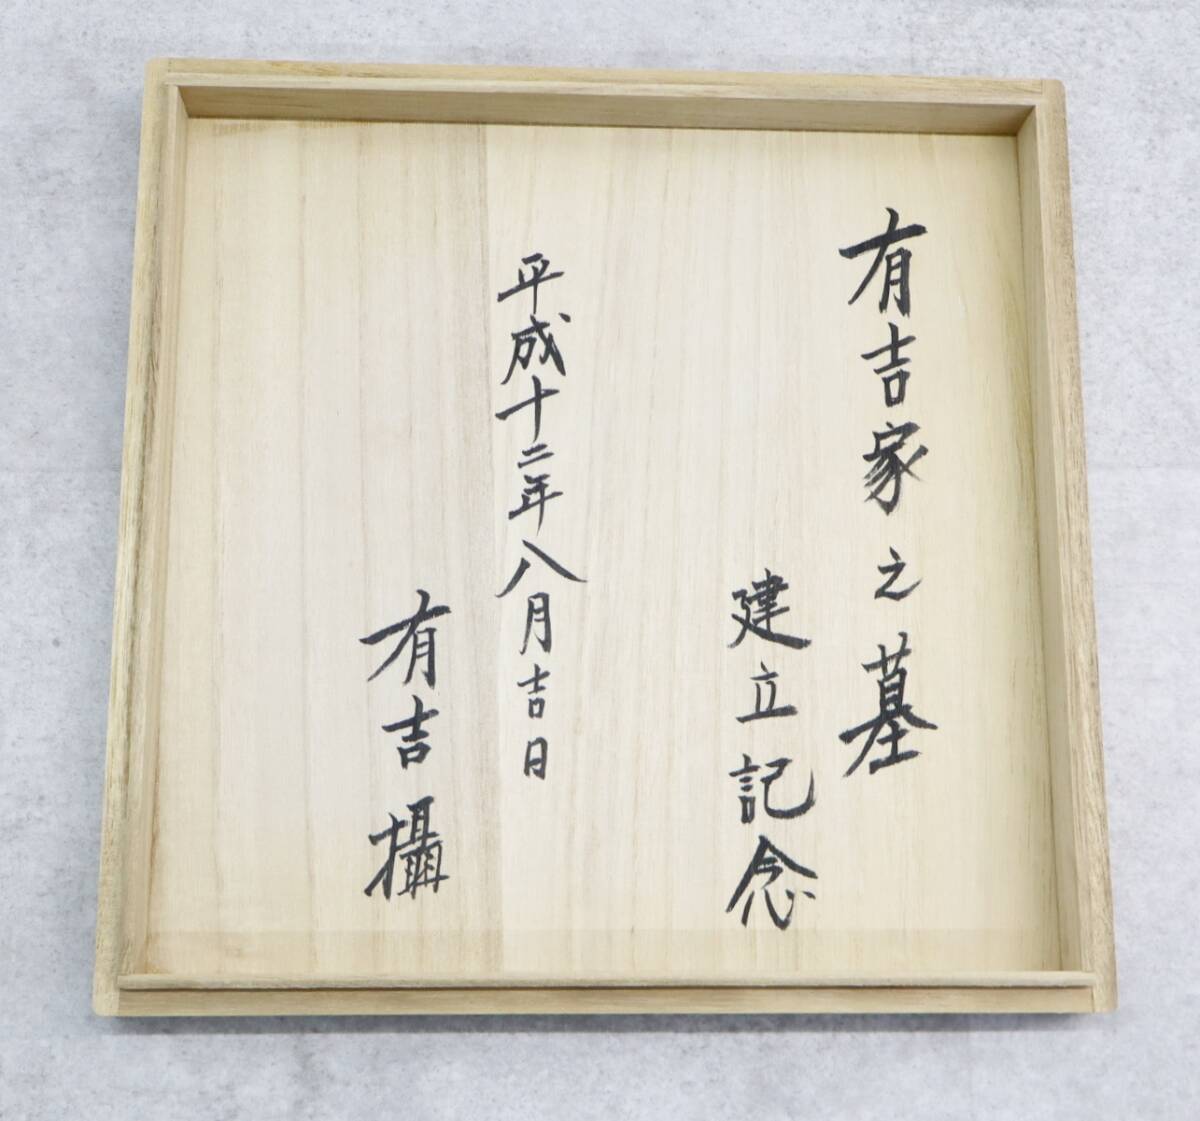 有吉家之墓
建立記念
平成十二年八月吉日
有吉攝